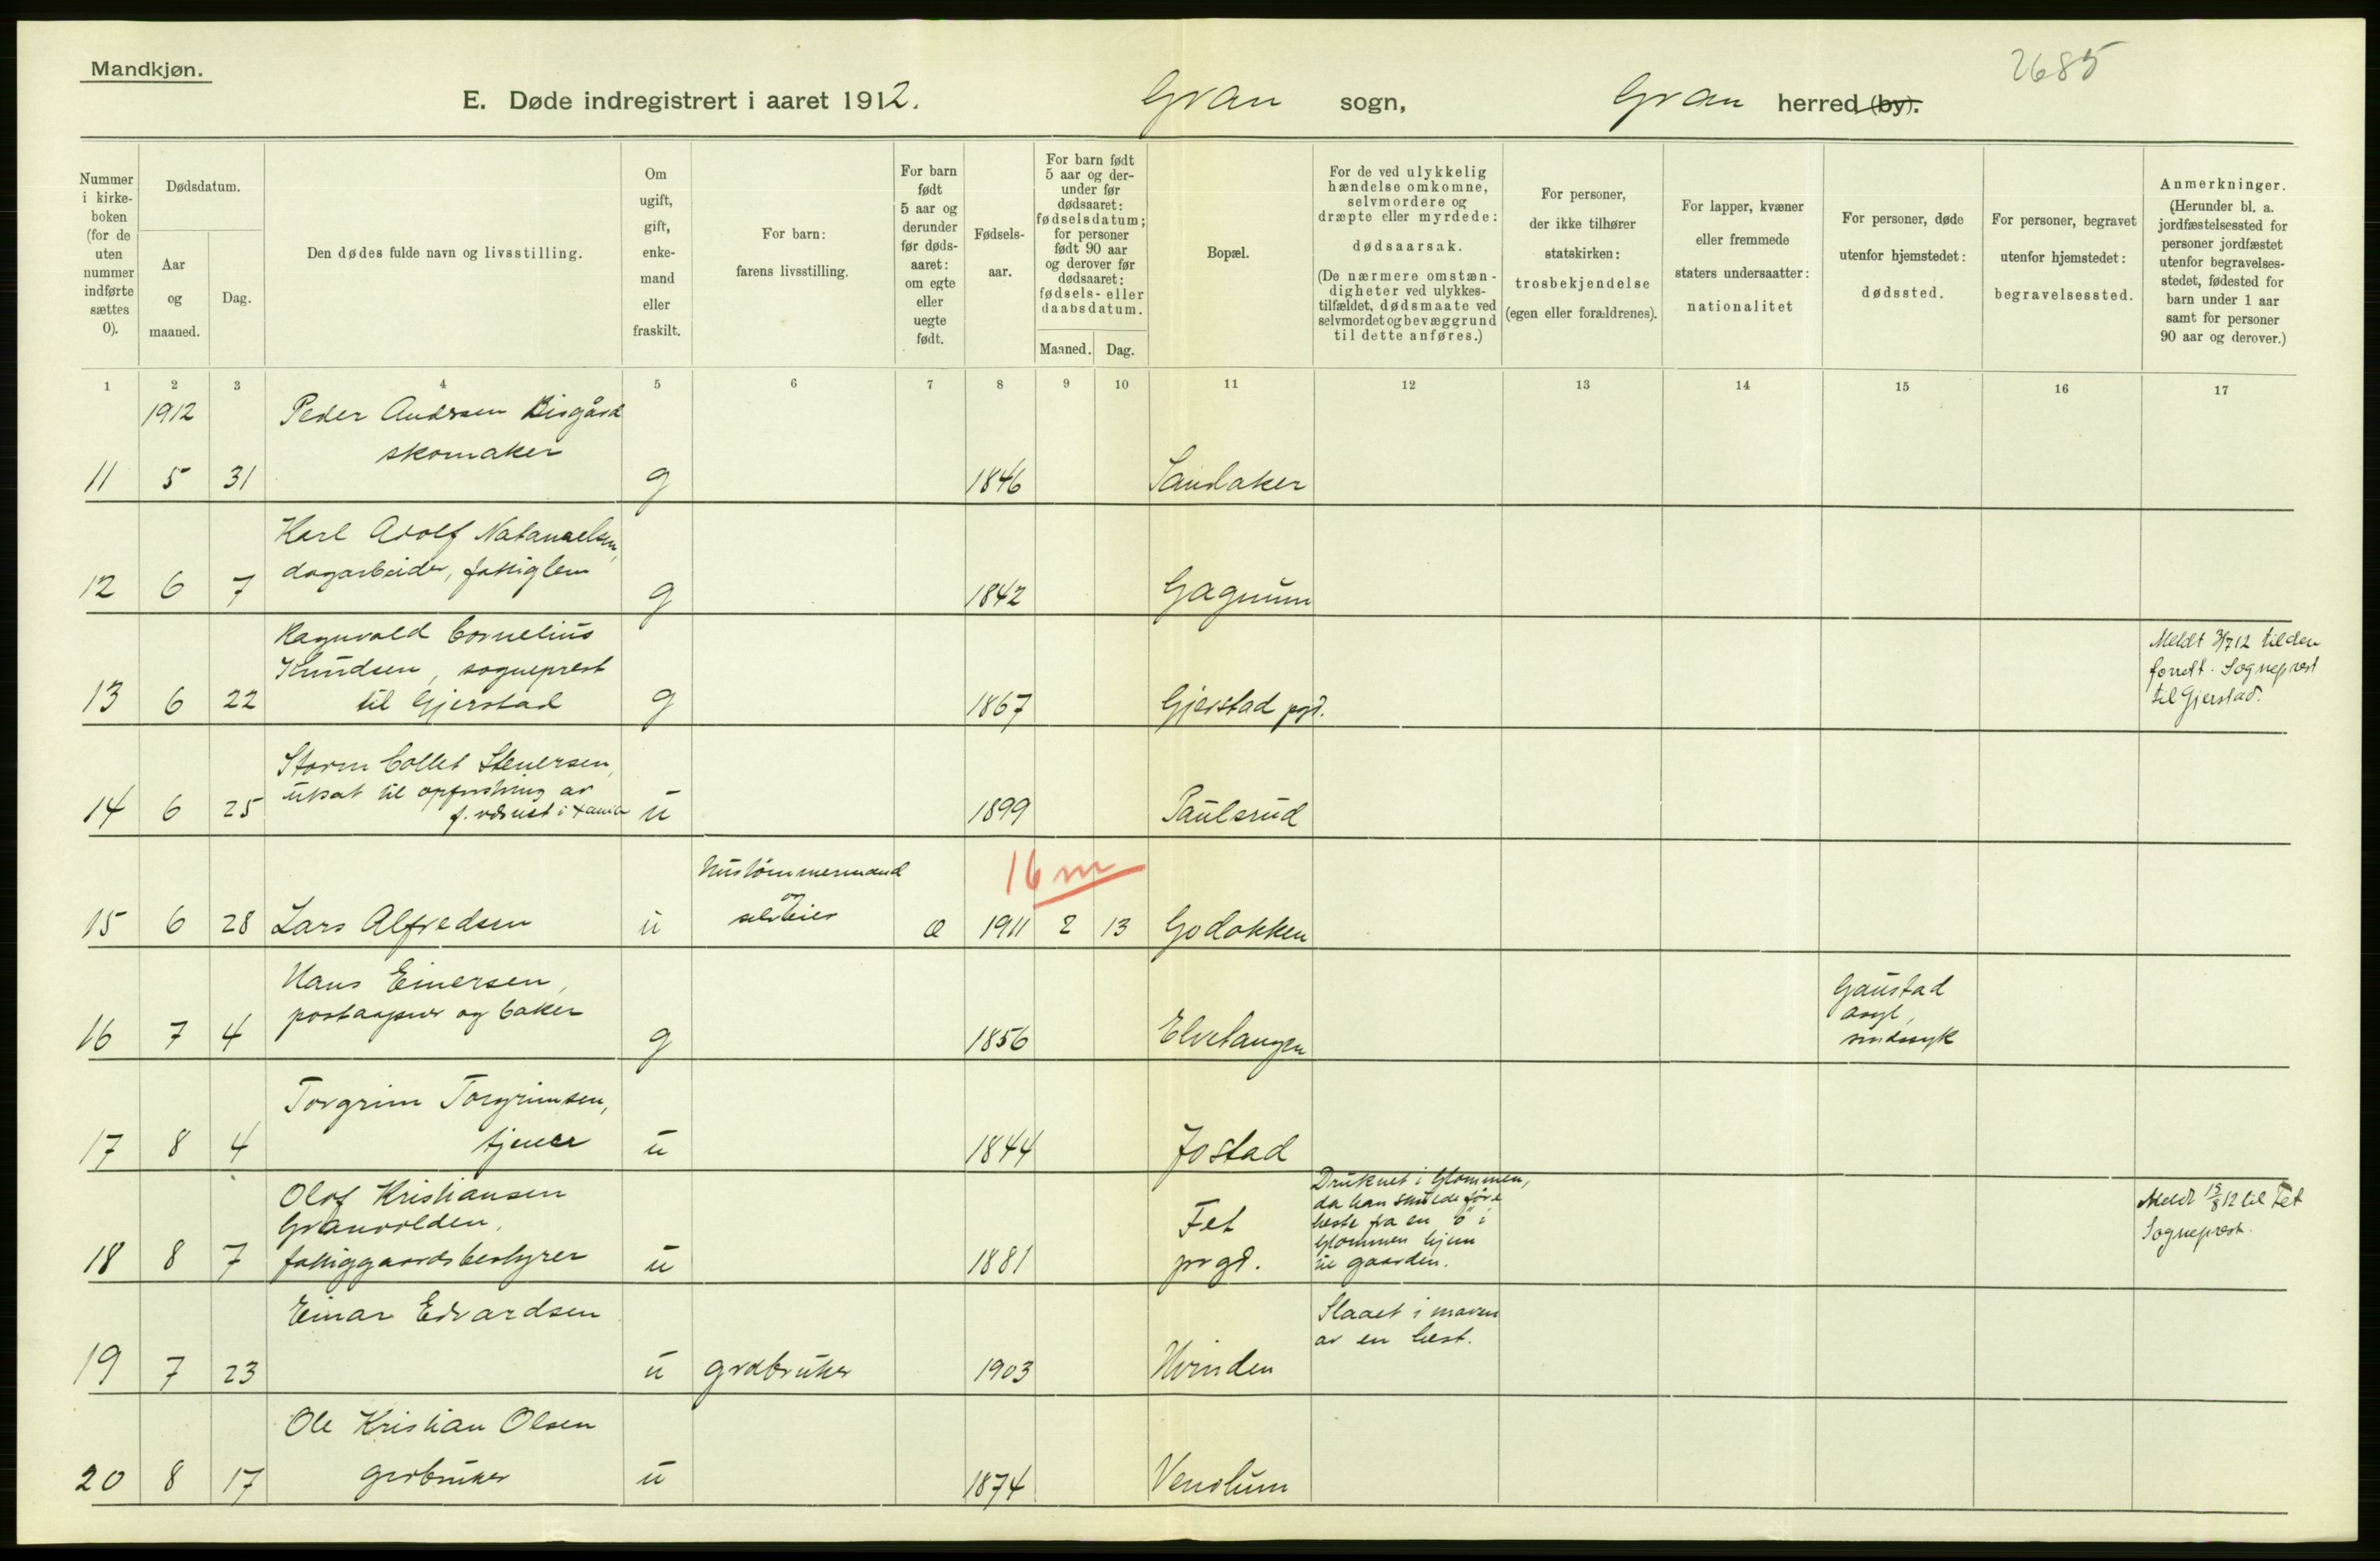 Mandkjøn.
2685
E. Døde indregistrert i aaret 1912. Gran sogn, Gran herred (by).
Nummer i kirke-boken (for de uten nummer indførte sættes 0).
Dødsdatum.
Aar og maaned.
Dag.
Den dødes fulde navn og livsstilling.
Om ugift, gift, enke-mand eller fraskilt.
For barn: farens livsstilling.
For barn født 5 aar og derunder før døds-aaret: om egte eller uegte født.
Fødsels-aar.
For barn født 5 aar og der-under før dødsaaret: fødselsdatum; for personer født 90 aar og derover før dødsaaret: fødsels- eller daabsdatum.
Maaned. Dag.
Bopæl.
For de ved ulykkelig hændelse omkomne, selvmordere og dræpte eller myrdede: dødsaarsak. (De nærmere omstæn-digheter ved ulykkes-tilfældet, dødsmaate ved selvmordet og bevæggrund til dette anføres.)
For personer, der ikke tilhører statskirken: trosbekjendelse (egen eller forældrenes).
For lapper, kvæner eller fremmede staters undersaatter: nationalitet
For personer, døde utenfor hjemstedet: dødssted.
For personer, begravet utenfor hjemstedet: begravelsessted.
Anmerkninger. (Herunder bl. a. jordfæstelsessted for personer jordfæstet utenfor begravelses-stedet, fødested for barn under 1 aar samt for personer 90 aar og derover.)
1 2 3 4 5 6 7 8 9 10 11 12 13 14 15 16 17
1912 Peder Andrsen Bisgård
skomaker
11 5 31 g 1846 Sandaker
Karl Adolf Natanaelsen,
dagarbeider, fattiglem
12 6 7 g 1842 Gagnum
Ragnvald Cornelius
Knudsen, sogneprest
til Gjerstad
13 6 22 g 1867 Gjerstad pgd.
Meldt 3/7 12 til den
forrett. Sogneprest
til Gjerstad.
Storm Collet Stenersen,
utsat til opfostring av
14 6 25 u 1899 Paulsrud
Hustømmermand
og
selveier
16 m
15 6 28 Lars Alfredsen u æ 1911 2 13 Godakken
Hans Einersen,
postaapner og baker
16 7 4 g 1856 Elvetangen
Gaustad
asyl,
sindssyk
Torgrim Torgrimsen,
tjener
17 8 4 u 1844 Jostad
Olof Kristiansen
Granvolden,
fattiggaardsbestyrer
18 8 7 u 1881 Fet
prgd.
Druknet i Glommen,
da han skulde føre
heste fra en "ø" i
Glommen hjem
til gaarden.
Meldt 15/8 12 til Fet
Sogneprest.
Einar Edvardsen
19 7 23 u grdbruker 1903 Hvinden
Slaaet i maven
av en hest.
Ole Kristian Olsen
grdbruker
20 8 17 u 1874 Venolum